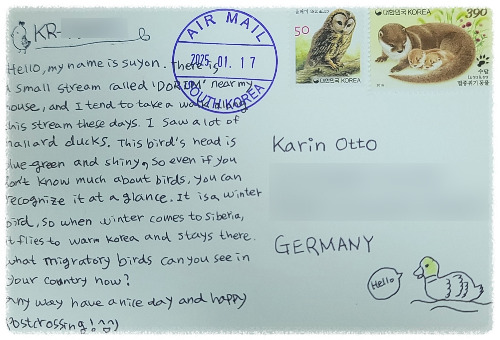 KR-
Hello, my name is suyon. There is
a small stream called 'DORIM' near my
house, and I tend to take a walk along
this stream these days. I saw a lot of
mallard ducks. This bird's head is
blue-green and shiny, so even if you
don't know much about birds, you can
recognize it at a glance. It is a winter
bird, so when winter comes to Siberia,
it flies to warm Korea and stays there.
what migratory birds can you see in
your country now?
Any way have a nice day and happy
postcrossing!
AIR MAIL
2025.01.17
SOUTH KOREA
50
대한민국 KOREA
대한민국 KOREA
390
수달
멸종위기동물
Karin Otto
GERMANY
Hello